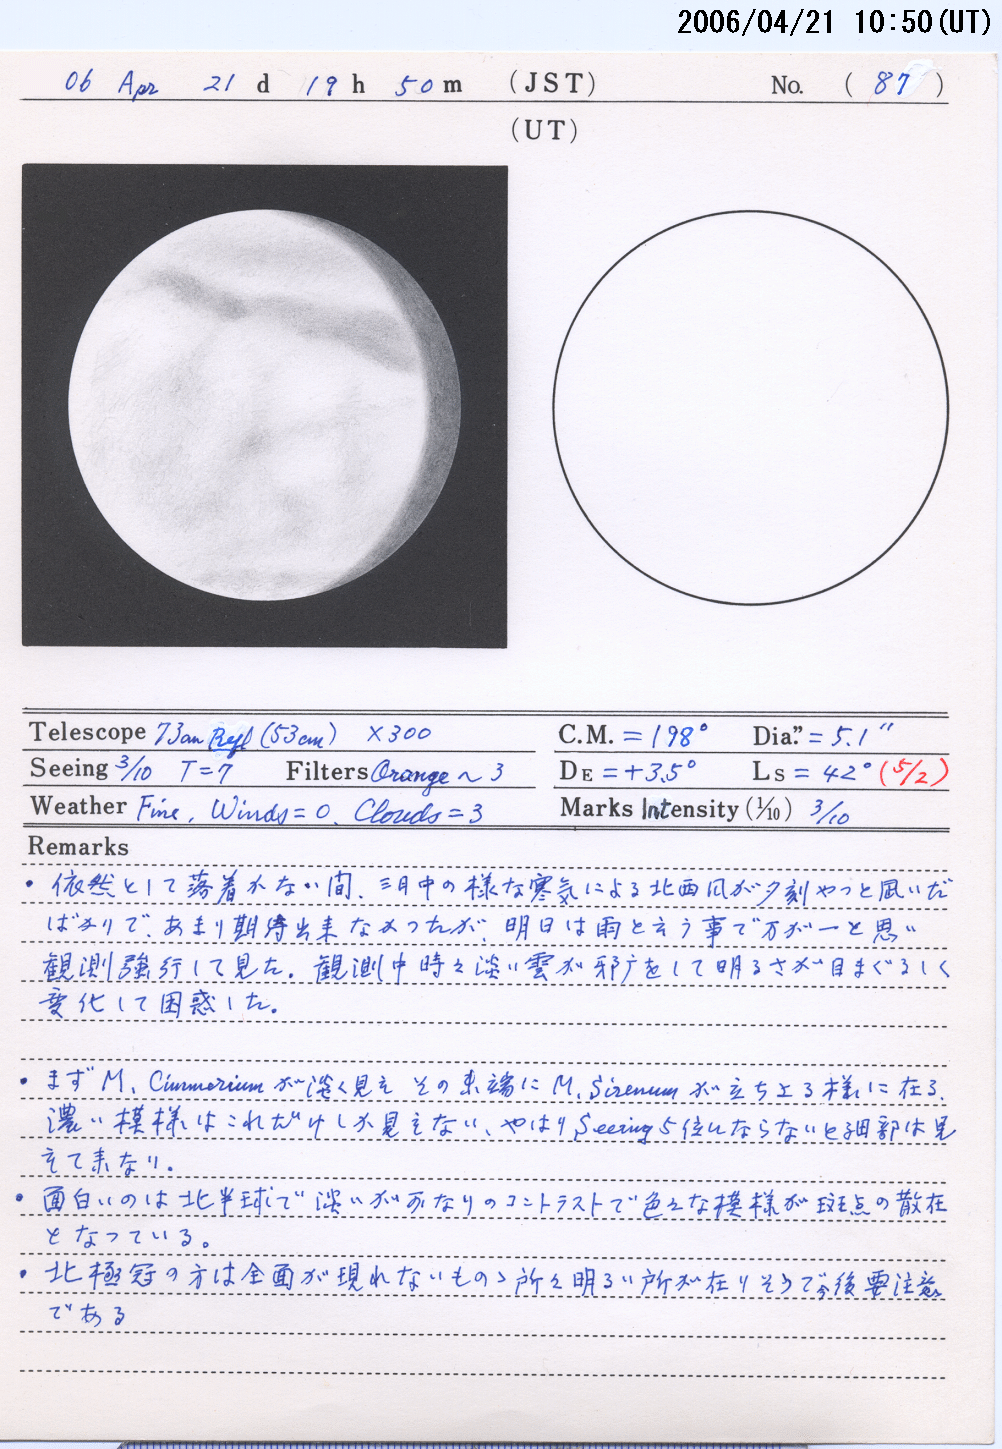 2006/04/21 10:50(UT)
06 Apr 21 d 19 h 50 m (JST) No. (87)
(UT)
Telescope 73cm Refl (53cm) ×300
C.M. = 198° Dia." = 5.1"
Seeing 3/10 T=7 Filters Orange~3
DE = +3.5° LS = 42° (5/2)
Weather Fine, Winds=0, Clouds=3
Marks Intensity (1/10) 3/10
Remarks
・依然として落着かない間、三月中の様な寒気による北西風が夕刻やっと凪いだ
ばかりで、あまり期待出来なかったが、明日は雨と言う事で万が一と思い
観測強行して見た。観測中時々淡い雲が邪广をして明るさが目まぐるしく
変化して困惑した。
・まずM. Cimmeriumが淡く見え その東端にM. Sirenumが立ち上る様に在る、
濃い模様はこれだけしか見えない、やはりSeeing 5位にならないと細部は見
えて来ない。
・面白いのは北半球で淡いが可なりのコントラストで色々な模様が斑点の散在
となっている。
・北極冠の方は全面が現れないものゝ所々明るい所が在りそうで今後要注意
である